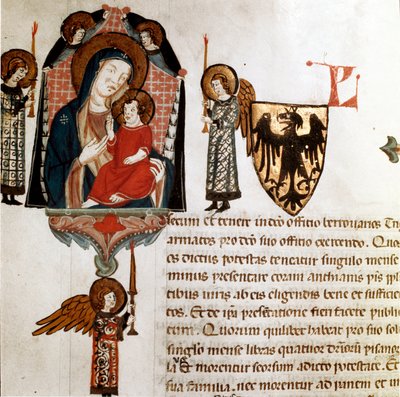 L
secum et tenere in dco officio berrovarios
armatos pro dco suo officio exercendo. Quos
es dictus potestas teneatur singulo mense
minus presentare coram anthianis
tibus viris ab eis eligendis bene et sufficie
tos. Et de ipa presetatione fieri facere public
tum. Quorum quilibet habeat pro suo sol
singlo mense libras quatuor pisanor
Et morentur seorsum adicto potestate. Et
sua familia. nec morentur ad panem et